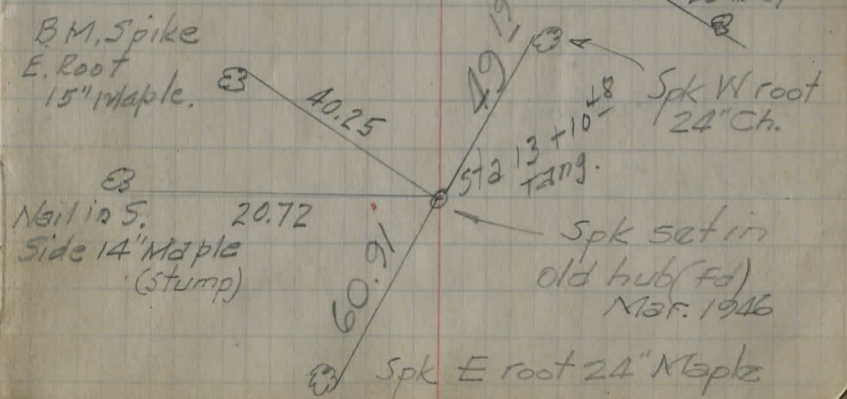 B.M. Spike
E. Root
15" Maple.
40.25
49.19
Spk W root
24" Ch.
Sta 13 +10
Tang.
Nail in S.
Side 14" Maple
(Stump)
20.72
60.91
Spk set in
old hub (Fd)
Mar. 1946
Spk E root 24" Maple